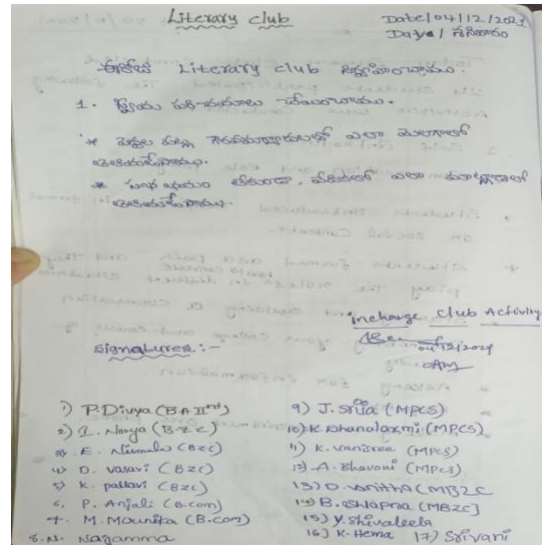 Literary club
Date/04/12/2021
Day/ శనివారం
ఈరోజు Literary club నిర్వహించాము.
1. స్వీయ పరిచయాలు చేయించాము.
* పెద్దల పట్ల గౌరవమర్యాదలతో ఎలా మెలగాలో
తెలియజేసినాము.
* సభా భయం లేకుండా, వేదికలో ఎలా మాట్లాడాలో
తెలియజేసినాము.
incharge club Activity
04/12/2021
signatures:-
1) P. Divya (BA IInd)
2) I. Navya (B.Z.C)
3) E. Nirmala (BZC)
4) D. vasavi (BZC)
5) K. pallavi (BZC)
6, P. Anjali (B.com)
7. M. Mounika (B.com)
8. N. Nagamma
9) J. Srija (MPCS)
10) K. Dhanalaxmi (MPCS)
11) K. vanisree (MPCS)
12) A. Bhavani (MPCS)
13) D. vanitha (MBZC
14) B. swapna (MBZC)
15) Y. Shivaleela
16] K. Hema 17) Srivani